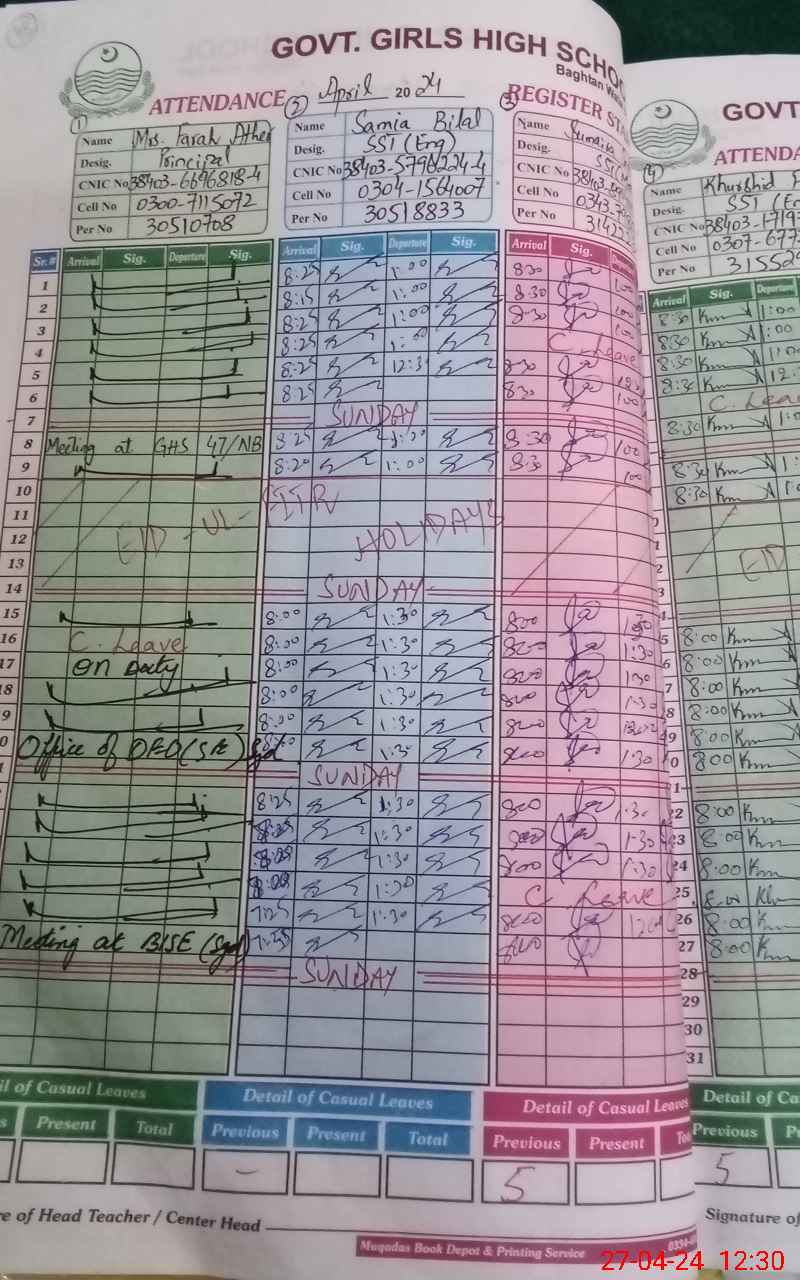 GOVT. GIRLS HIGH SCHO
Baghtan
ATTENDANCE April 2024 REGISTER STA
1
Name Mrs. Farah Ather
Desig. Principal
CNIC No 38403-6696818-4
Cell No 0300-7115072
Per No 30510708
2
Name Samia Bilal
Desig. SST (Eng)
CNIC No 38403-5796224-4
Cell No 0304-1564007
Per No 30518833
3
Name
Desig. SST
CNIC No 38403
Cell No 0343
Per No 3142
GOVT
ATTENDA
4
Name Khurshid
Desig. SST (En
CNIC No 38403-1719
Cell No 0307-677
Per No 31552
Sr.# Arrival Sig. Departure Sig. Arrival Sig. Departure Sig. Arrival Sig. Arrival Sig. Departure
1 8:25 1:00 830 100 8:30 Km 1:00
2 8:15 1:00 830 100 8:30 Km 1:00
3 8:25 1:00 8:30 100 8:30 Km 1:00
4 8:25 1:00 C. Leave 8:30 Km 12:
5 8:25 12:3 830 C. Leav
6 8:25 830 100 8:30 Km
7 SUNDAY
8 Meeting at GHS 47/NB 8:25 1:00 8:30 100 8:30 Km
9 8:20 1:00 8:30 100 8:30 Km
10
11 EID-UL-FITR
12 HOLIDAYS EID
13
14 SUNDAY
15 8:00 1:30 800 130 8:00 Km
16 C. Leave 8:00 1:30 800 1:30 8:00 Km
17 on Duty 8:00 1:30 800 130 8:00 Km
18 8:00 1:30 800 1:30 8:00 Km
9 8:00 1:30 800 8:00 Km
0 Office of DEO(SE) Sgd 1:30 800 1:30 8:00 Km
SUNDAY
8:25 1:30 800 1:30 22 8:00 Km
8:25 1:30 1:30 23 8:00 Km
1:30 800 1:30 24 8:00 Km
8:00 1:30 C. Leave 25 8:00
7:25 1:30 800 26 8:00 K
Meeting at BISE (Sgd) 7:25 800 27 8:00 K
SUNDAY 28
29
30
31
il of Casual Leaves Detail of Casual Leaves Detail of Casual Leaves Detail of Ca
s Present Total Previous Present Total Previous Present To Previous Pre
- 5 5
re of Head Teacher / Center Head
Signature of
Muqadas Book Depot & Printing Service 0334-
27-04-24 12:30